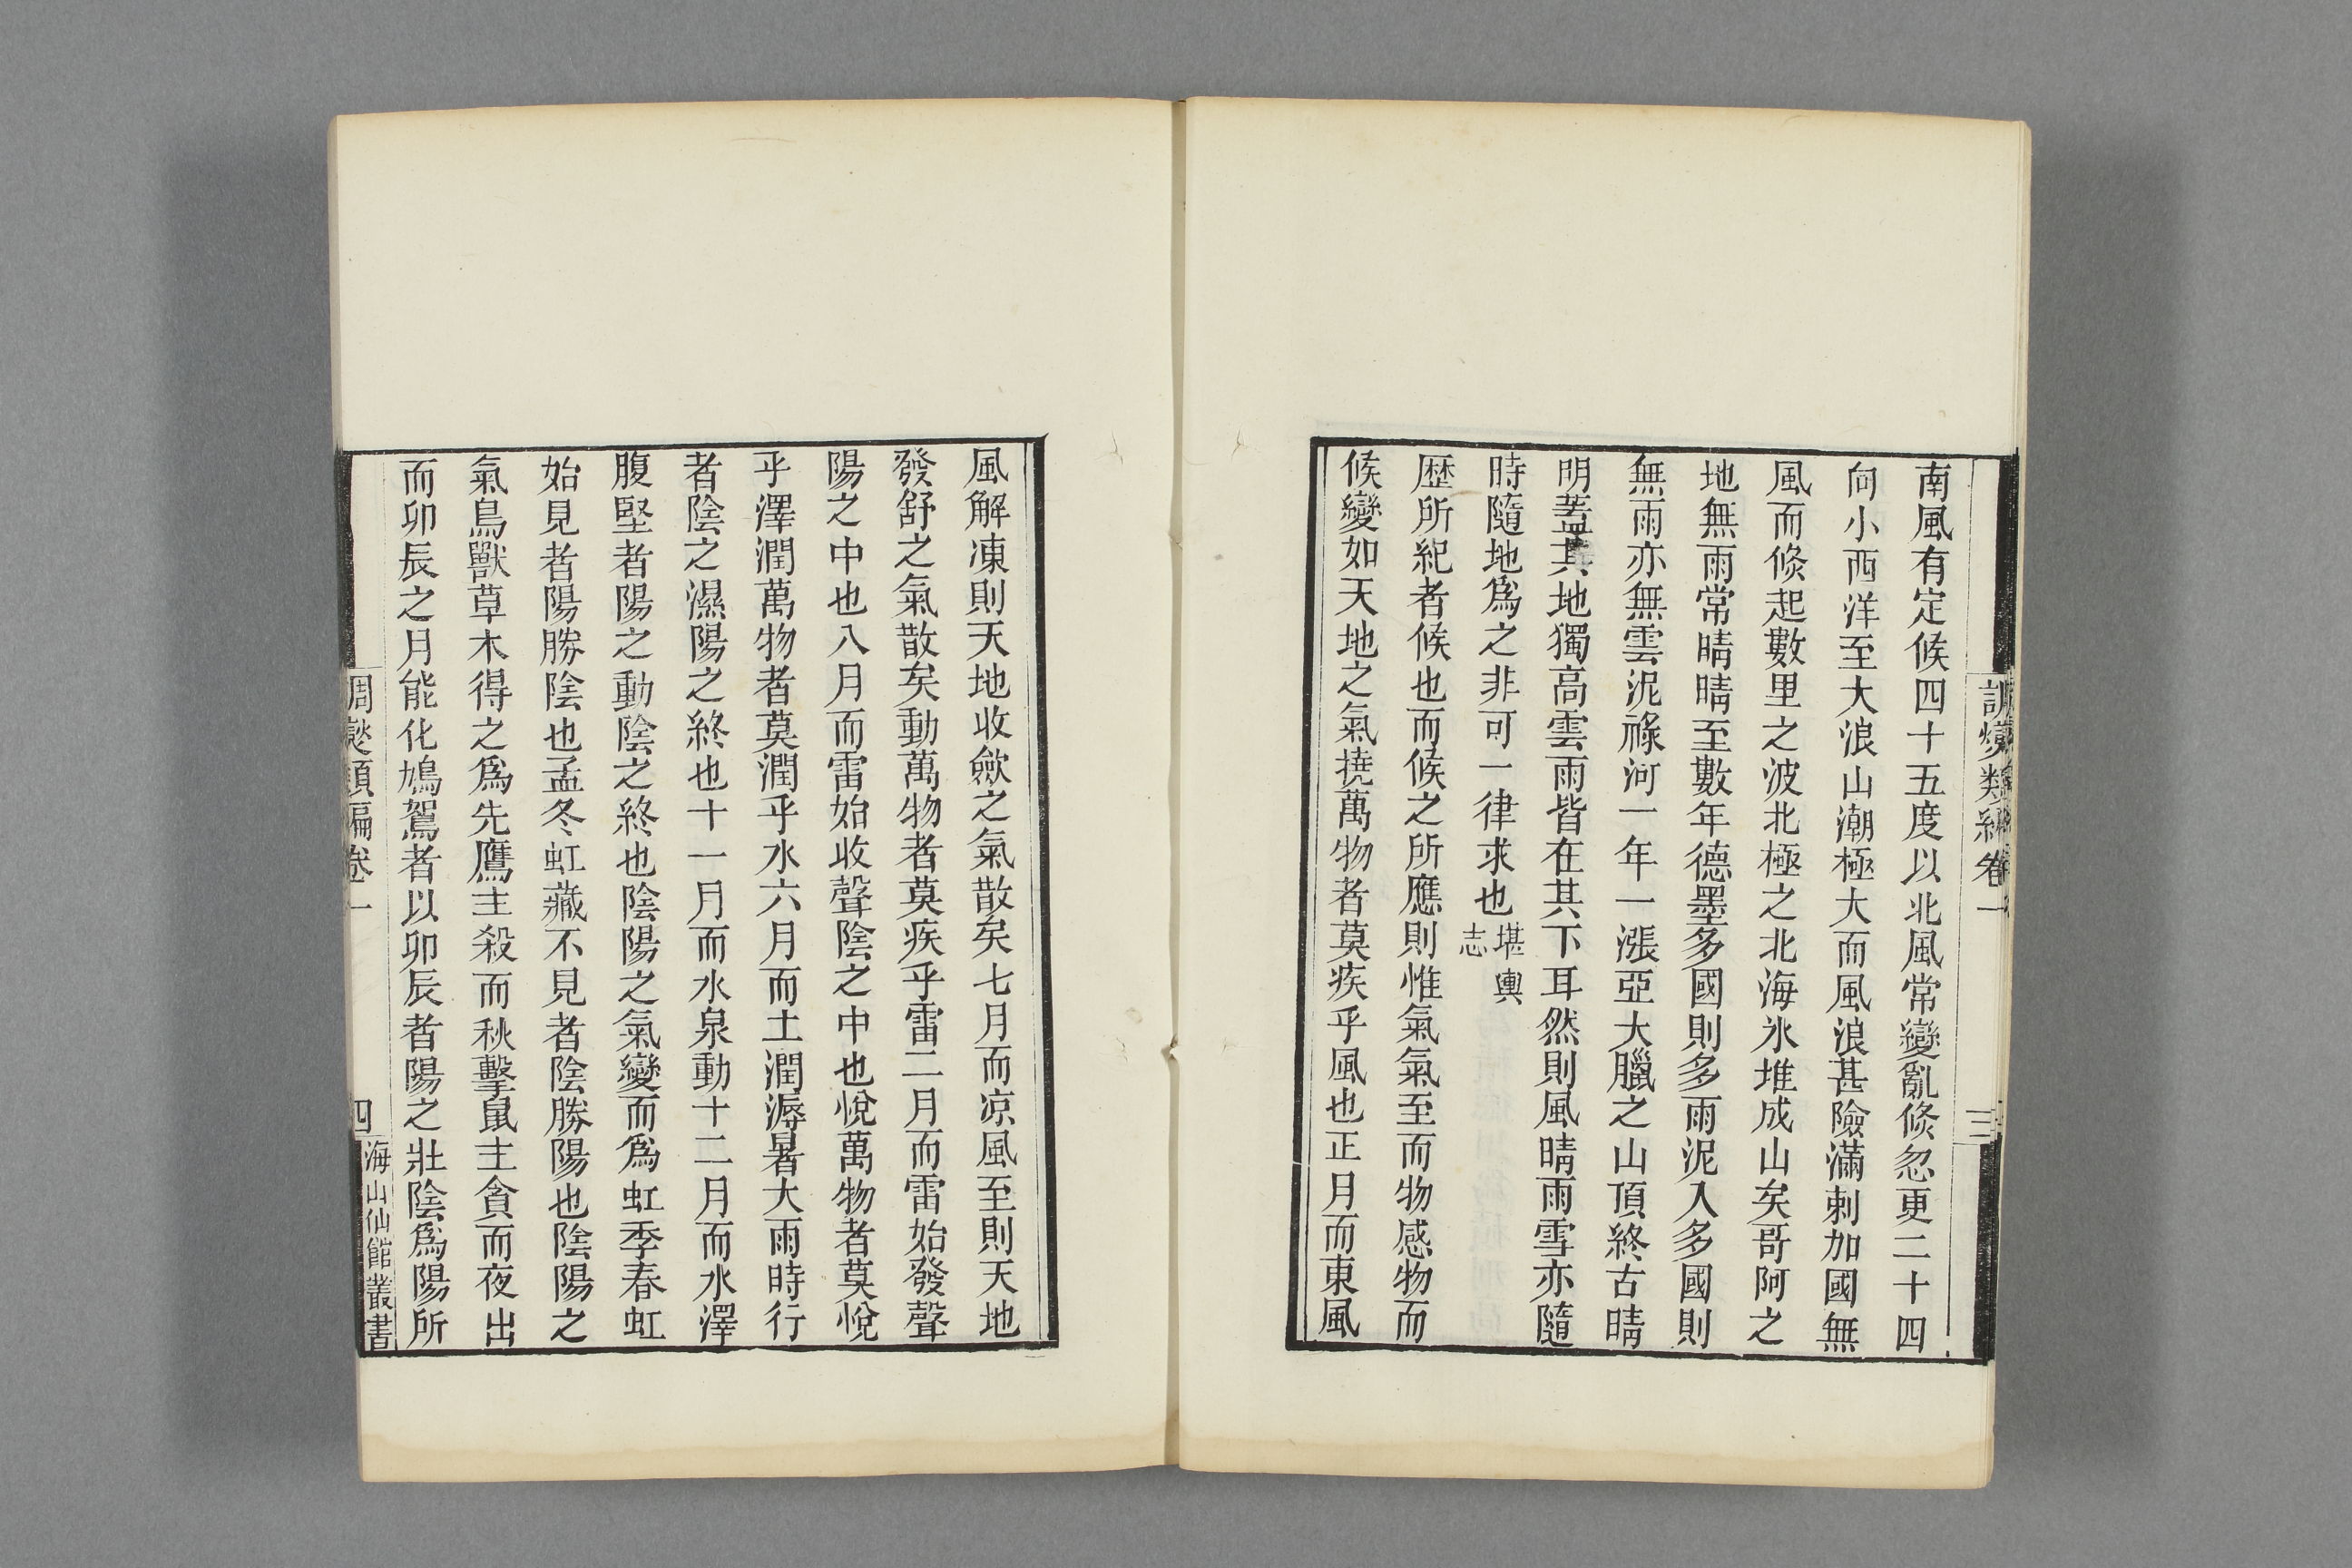 調燮類編卷一
三
南風有定候四十五度以北風常變亂倏忽更二十四
向小西洋至大浪山潮極大而風浪甚險滿剌加國無
風而倏起數里之波北極之北海氷堆成山矣哥阿之
地無雨常晴晴至數年德墨多國則多雨泥入多國則
無雨亦無雲泥祿河一年一漲亞大臘之山頂終古晴
明葢其地獨高雲雨皆在其下耳然則風晴雨雪亦隨
時隨地爲之非可一律求也堪輿志
歷所紀者候也而候之所應則惟氣氣至而物感物而
候變如天地之氣撓萬物者莫疾乎風也正月而東風
風解凍則天地收歛之氣散矣七月而凉風至則天地
發舒之氣散矣動萬物者莫疾乎雷二月而雷始發聲
陽之中也八月而雷始收聲陰之中也悅萬物者莫悅
乎澤潤萬物者莫潤乎水六月而土潤溽暑大雨時行
者陰之濕陽之終也十一月而水泉動十二月而水澤
腹堅者陽之動陰之終也陰陽之氣變而爲虹季春虹
始見者陽勝陰也孟冬虹藏不見者陰勝陽也陰陽之
氣鳥獸草木得之爲先鷹主殺而秋擊鼠主貪而夜出
而卯辰之月能化鳩鴽者以卯辰者陽之壯陰爲陽所
調燮類編卷一
四
海山仙館叢書